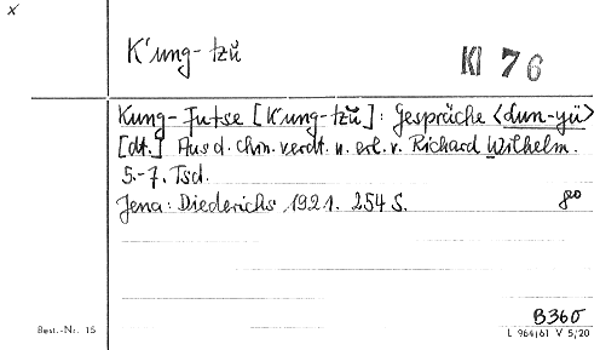 x
K'ung-tzŭ
KI 76
Kung-Futse [K'ung-tzŭ]: Gespräche <Lun-yü>
[dt.] Aus d. Chin. verdt. u. erl. v. Richard Wilhelm.
5.-7. Tsd.
Jena: Diederichs 1921. 254 S. 8°
B360
Best.-Nr. 15
L 964/61 V 5/20